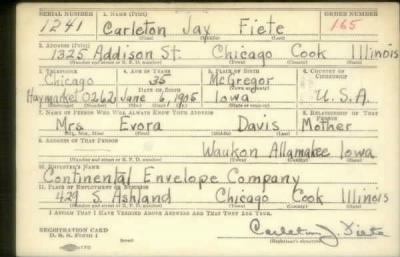 SERIAL NUMBER 1. NAME (Print) ORDER NUMBER
1241 Carleton Jay Fiete 165
(First) (Middle) (Last)
2. ADDRESS (Print)
1325 Addison St. Chicago Cook Illinois
(Number and street or R. F. D. number) (Town) (County) (State)
3. TELEPHONE 4. AGE IN YEARS 5. PLACE OF BIRTH 6. COUNTRY OF CITIZENSHIP
Chicago 35 McGregor
DATE OF BIRTH
Haymarket 0262 June 6, 1905 Iowa U.S.A.
7. NAME OF PERSON WHO WILL ALWAYS KNOW YOUR ADDRESS 8. RELATIONSHIP OF THAT PERSON
Mrs. Evora Davis Mother
(Mr., Mrs., Miss) (First) (Middle) (Last)
9. ADDRESS OF THAT PERSON
Waukon Allamakee Iowa
(Number and street or R. F. D. number) (Town) (County) (State)
10. EMPLOYER'S NAME
Continental Envelope Company
11. PLACE OF EMPLOYMENT OR BUSINESS
429 S. Ashland Chicago Cook Illinois
(Number and street or R. F. D. number) (Town) (County) (State)
I AFFIRM THAT I HAVE VERIFIED ABOVE ANSWERS AND THAT THEY ARE TRUE.
REGISTRATION CARD
D. S. S. FORM 1 Carleton J. Fiete
(Registrant's signature)